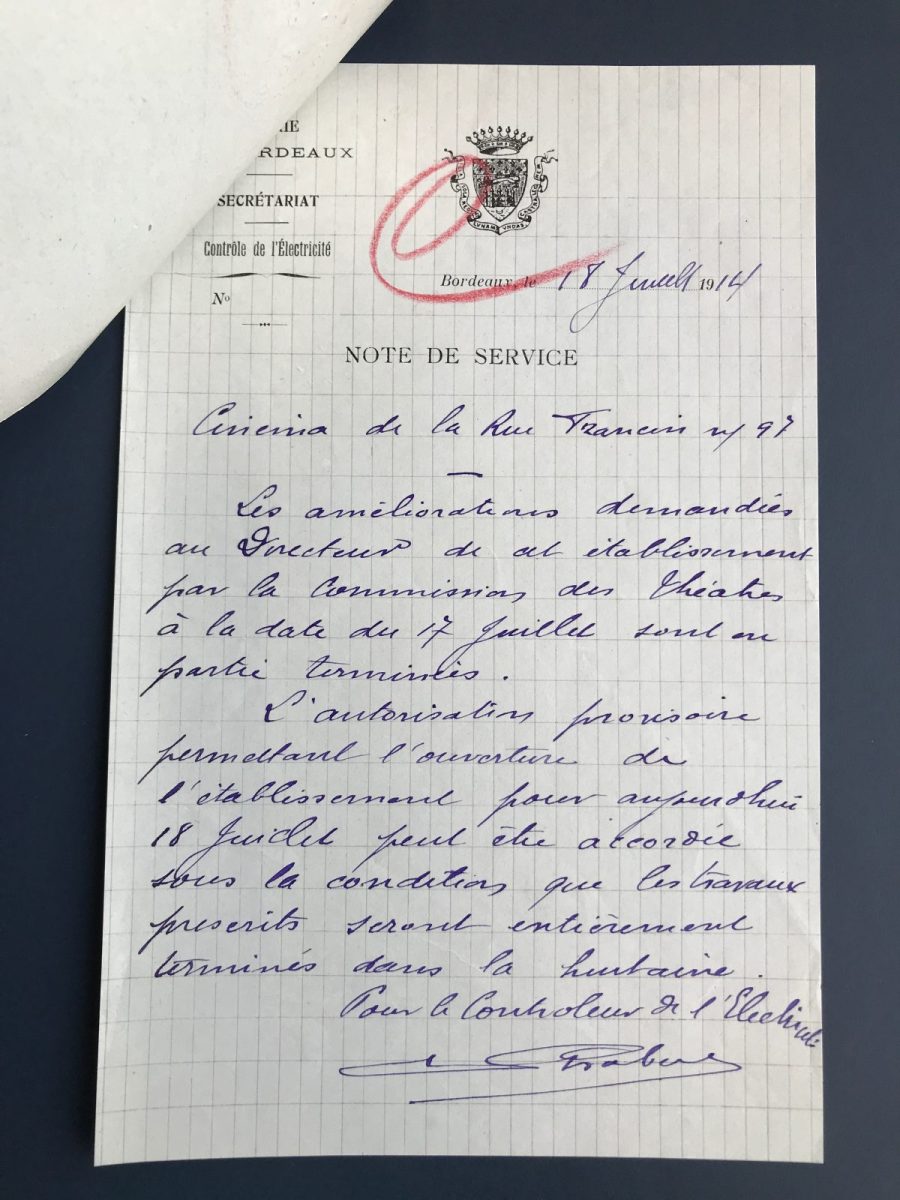 RIE
ORDEAUX
SECRÉTARIAT
Contrôle de l'Électricité
No
LUNAM UNDAS
Bordeaux, le 18 Juillet 1914
NOTE DE SERVICE
Cinema de la Rue Francin n/ 97
Les améliorations demandées
au Directeur de cet établissement
par la Commission des Théatres
à la date du 17 Juillet sont en
partie terminées.
L'autorisation provisoire
permettant l'ouverture de
l'établissement pour aujourdhui
18 Juillet peut être accordée
sous la condition que les travaux
prescrits seront entièrement
terminés dans la huitaine.
Pour le Controleur de l'Electricité